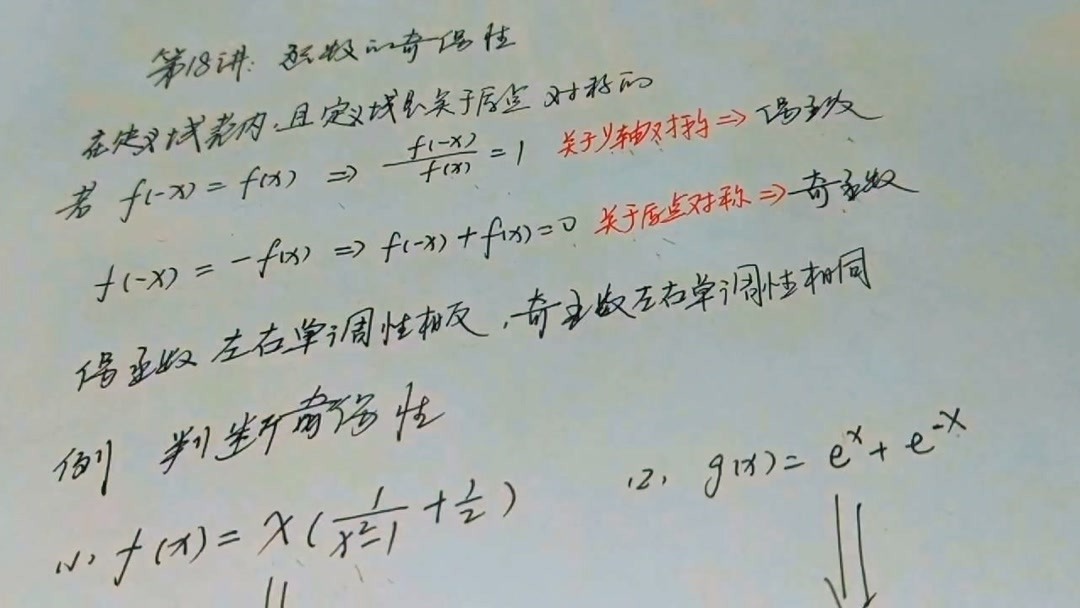 第18讲: 函数的奇偶性
在定义域范内,且定义域是关于原点 对称的
若 f(-x) = f(x) ⇒ f(-x)/f(x) = 1 关于y轴对称 ⇒ 偶函数
f(-x) = -f(x) ⇒ f(-x)+f(x)=0 关于原点对称 ⇒ 奇函数
偶函数 左右单调性相反,奇函数左右单调性相同
例 判断奇偶性
(1) f(x) = x(1/(x²-1) + 1/2) (2) g(x) = eˣ + e⁻ˣ